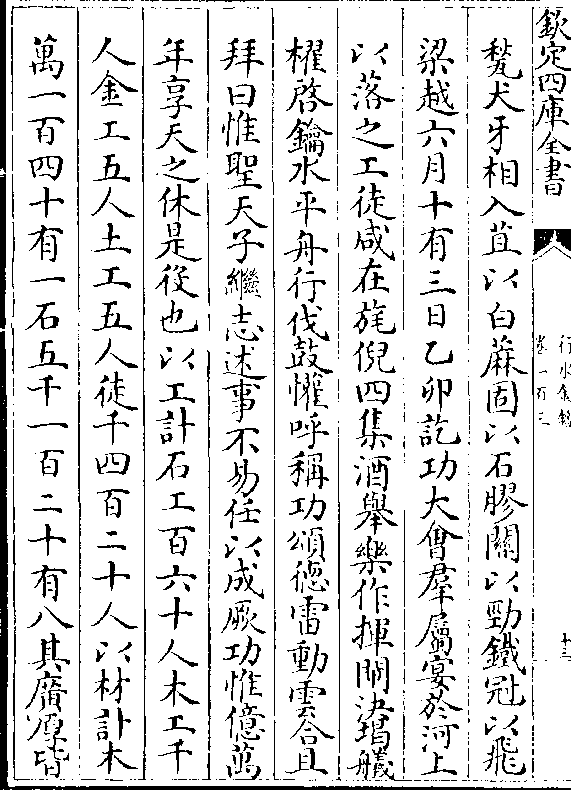 欽定四庫全書
行水金鑑
卷一百三
十三
甃犬牙相入苴以白蔴固以石膠關以勁鐵冠以飛
梁越六月十有三日乙卯訖功大會羣屬宴於河上
以落之工徒咸在旄倪四集酒舉樂作揮閘決堨艤
櫂啓鑰水平舟行伐鼓懽呼稱功頌德雷動雲合且
拜曰惟聖天子繼志述事不易任以成厥功惟億萬
年享天之休是役也以工計石工百六十人木工千
人金工五人土工五人徒千四百二十人以材計木
萬一百四十有一石五千一百二十有八其廪㡖皆